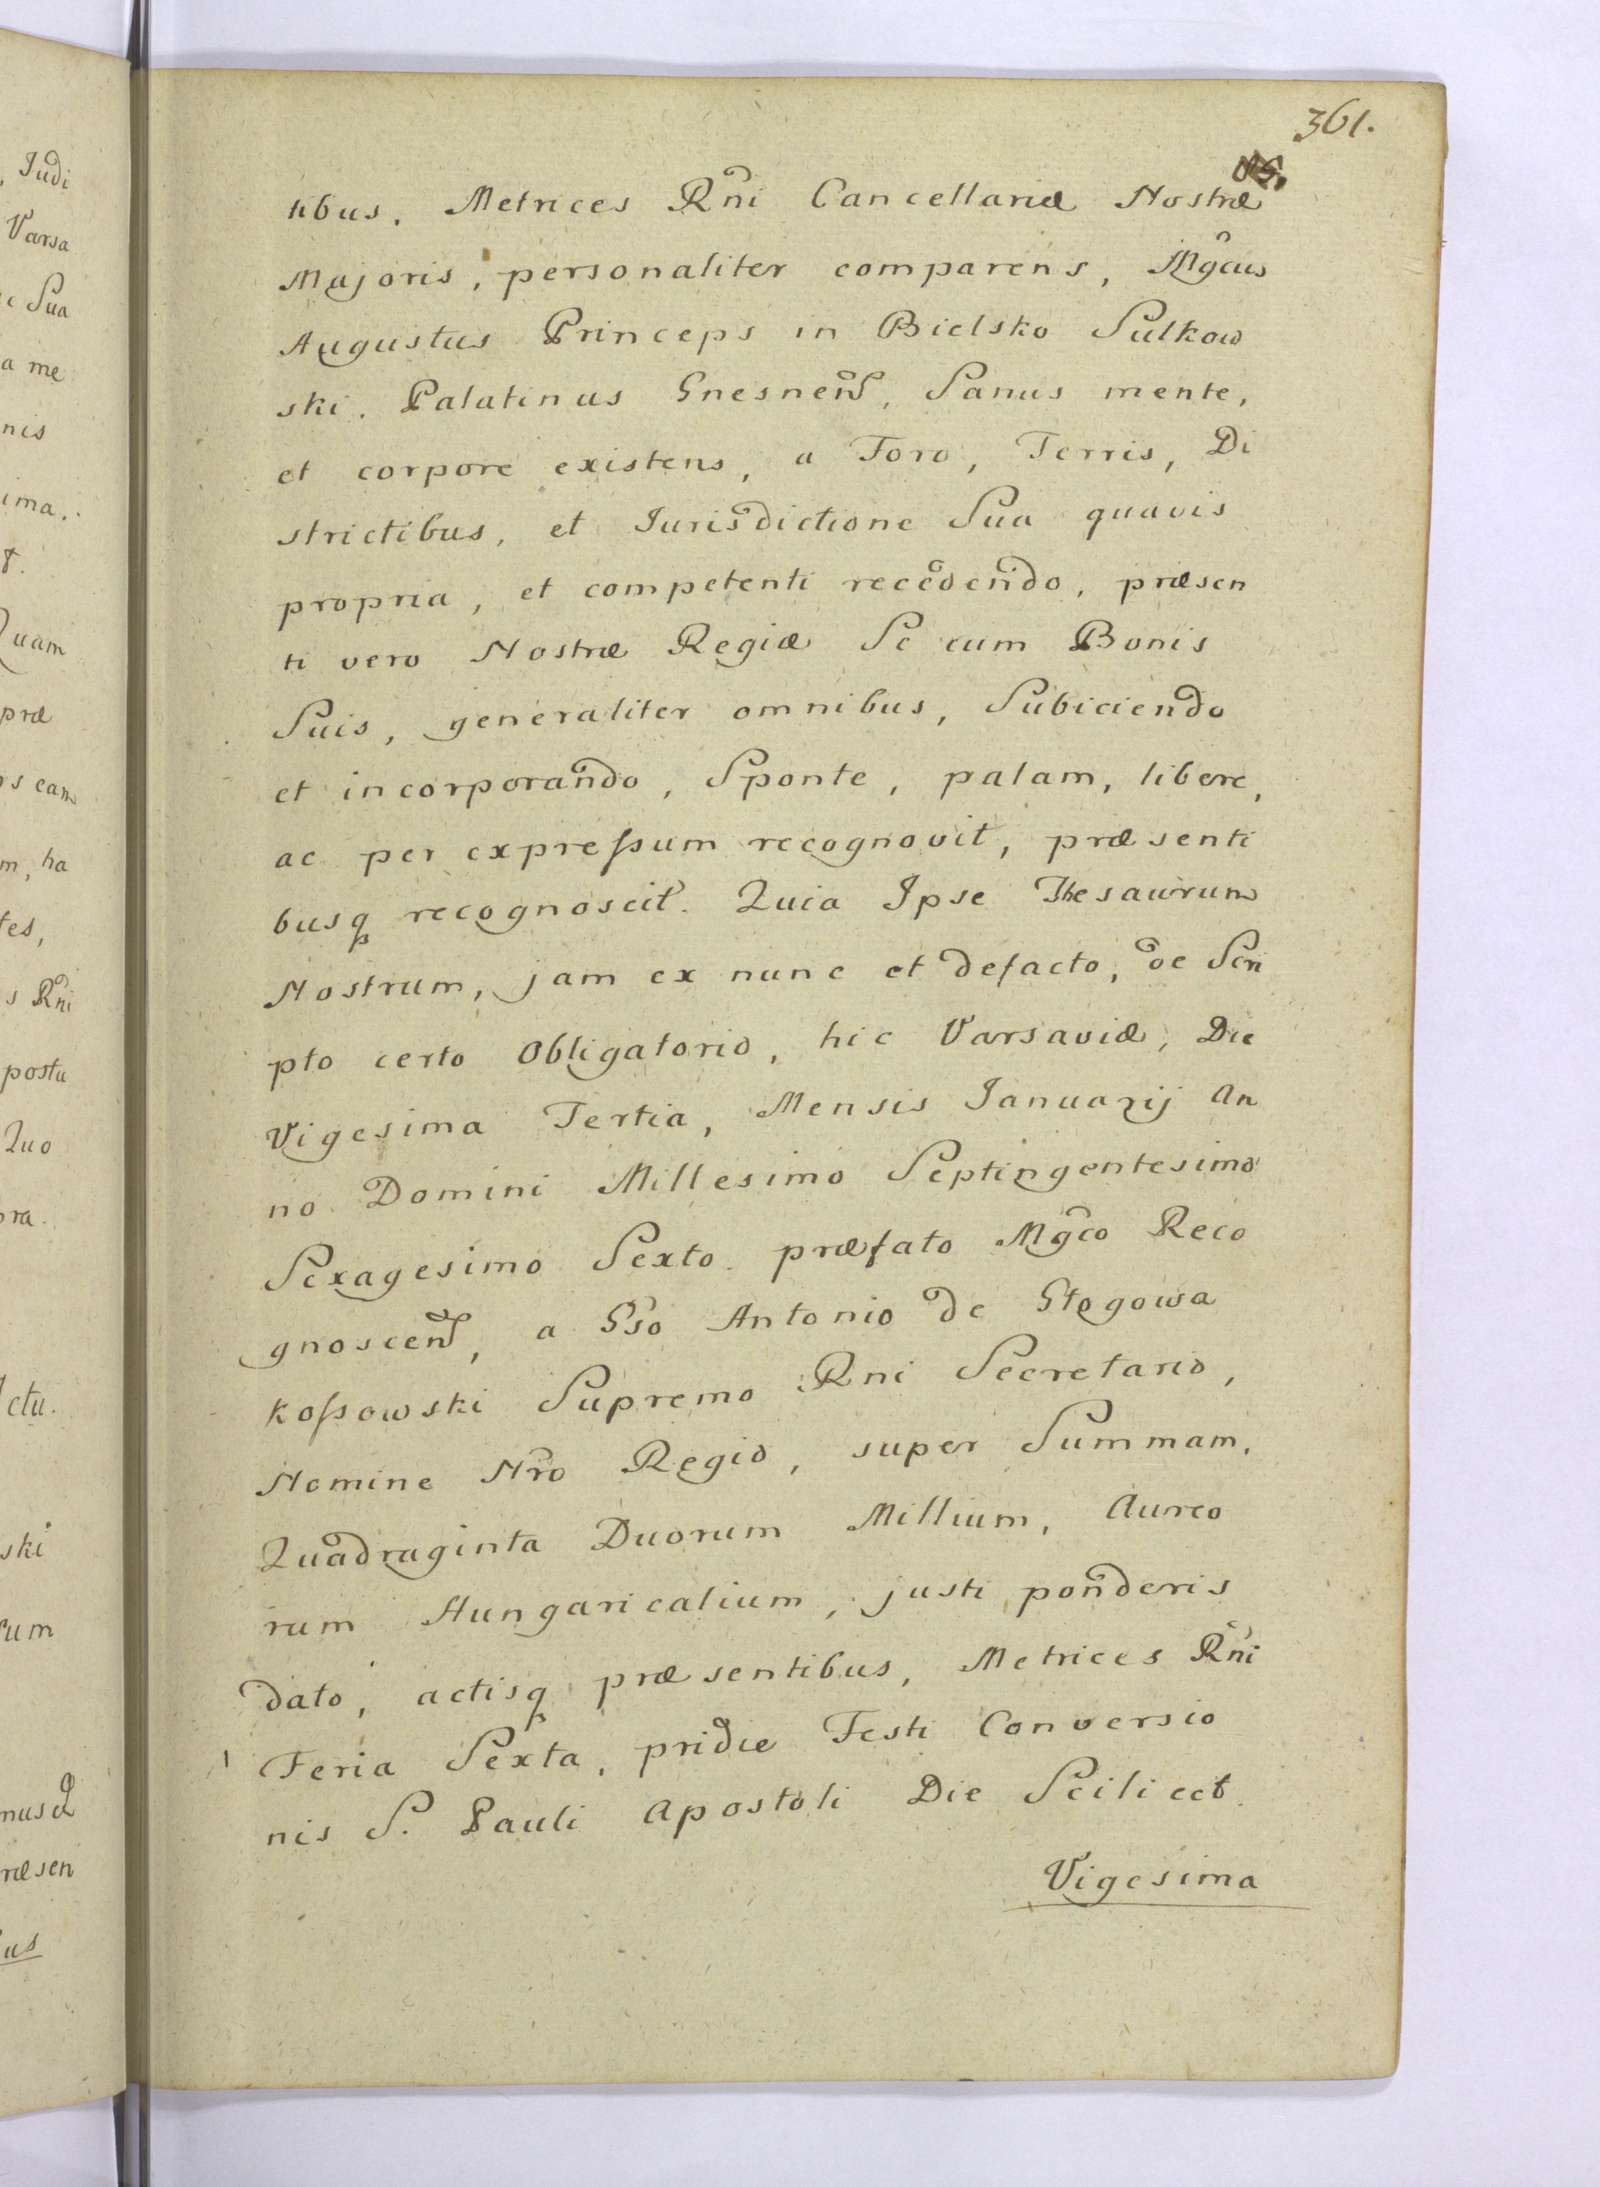 361.
tibus. Metrices Rni Cancellariæ Nostræ
Majoris, personaliter comparens, Mgcus
Augustus Princeps in Bielsko Sulkow
ski. Palatinus Gnesnens, Sanus mente,
et corpore existens, a Foro, Terris, Di
strictibus, et Jurisdictione Sua quavis
propria, et competenti recedendo, præsen
ti vero Nostræ Regiæ Se cum Bonis
Suis, generaliter omnibus, Subiciendo
et incorporando, Sponte, palam, libere,
ac per expressum recognovit, præsenti
busq recognoscit. Quia Ipse Thesaurum
Nostrum, jam ex nunc et defacto, de Scri
pto certo Obligatorio, hic Varsaviæ, Die
Vigesima Tertia, Mensis Januarij An
no Domini Millesimo Septingentesimo
Sexagesimo Sexto. præfato Mgco Reco
gnoscen, a Gso Antonio de Głogowa
Kossowski Supremo Rni Secretario,
Nomine Nro Regio, super Summam,
Quadraginta Duorum Millium, Aureo
rum Hungaricalium, justi ponderis
dato, actisq præsentibus, Metrices Rni
Feria Sexta, pridie Festi Conversio
nis S. Pauli Apostoli Die Scilicet
Vigesima
Judi
Varsa
Sua
a me
nis
ima.
Quam
præ
s eam
m, ha
tes,
s Rni
postu
Quo
ora.
ctu.
ski
rum
ræsen
us